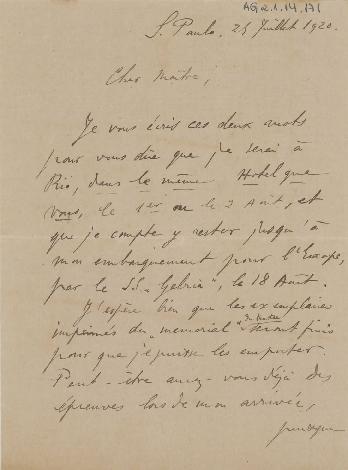 AG 2.1.14.171
S. Paulo, 25 Juillet 1920.
Cher Maître,
Je vous écris ces deux mots
pour vous dire que je serai à
Rio, dans le même Hotel que
vous, le 1er ou le 2 Août, et
que je compte y rester jusqu'à
mon embarquement pour l'Europe,
par le S.S. "Gelria", le 18 Août.
J'espère bien que les exemplaires
imprimés du memorial seront finis
pour que je puisse les emporter.
Peut-être aurez-vous déjà des
épreuves lors de mon arrivée,